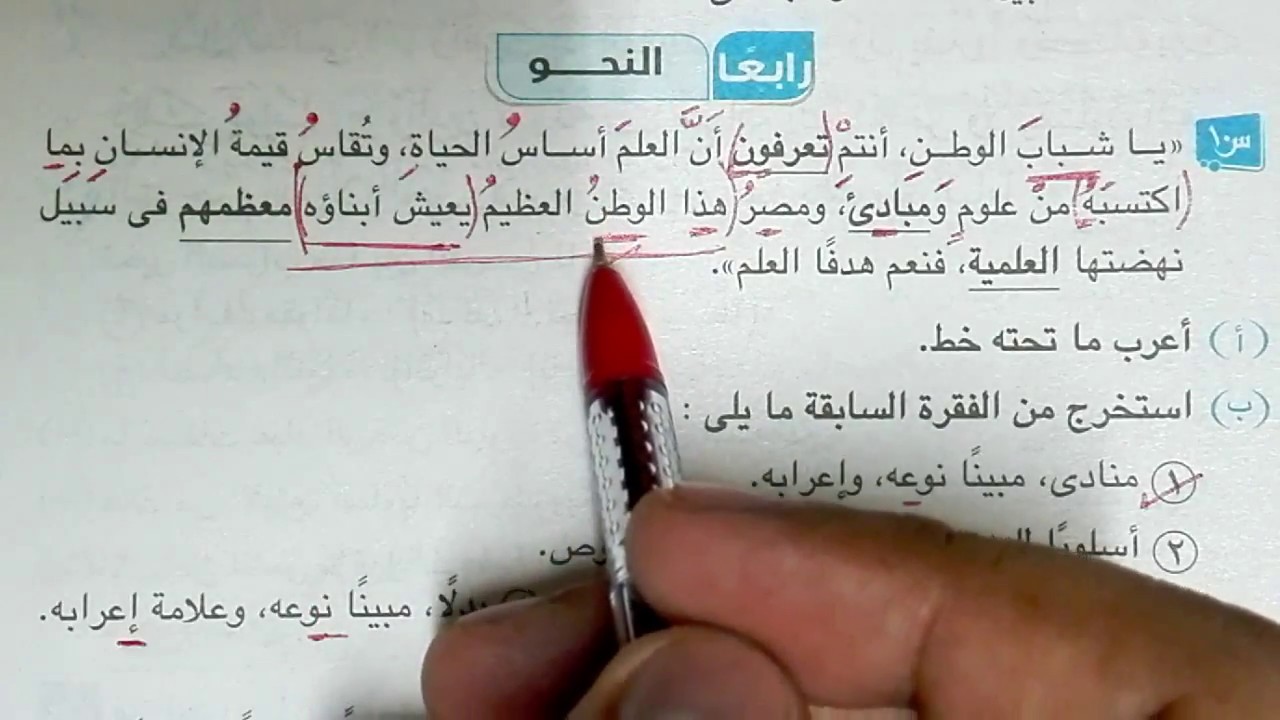 رابعًا النحـــو
س١٠ «يـا شـبـابَ الوطـنِ، أنتمْ تعرفون أَنَّ العلمَ أسـاسُ الحياةِ، وتُقاسُ قيمةُ الإنسـانِ بِما
اكتسبَهُ منْ علومٍ وَمبادئَ، ومصرُ هذا الوطنُ العظيمُ يعيشُ أبناؤه معظمهم فى سبيلِ
نهضتها العلمية، فنعم هدفًا العلم».
(أ) أعرب ما تحته خط.
(ب) استخرج من الفقرة السابقة ما يلى :
١ منادى، مبينًا نوعه، وإعرابه.
٢ أسلوبًا
بدلًا، مبينًا نوعه، وعلامة إعرابه.